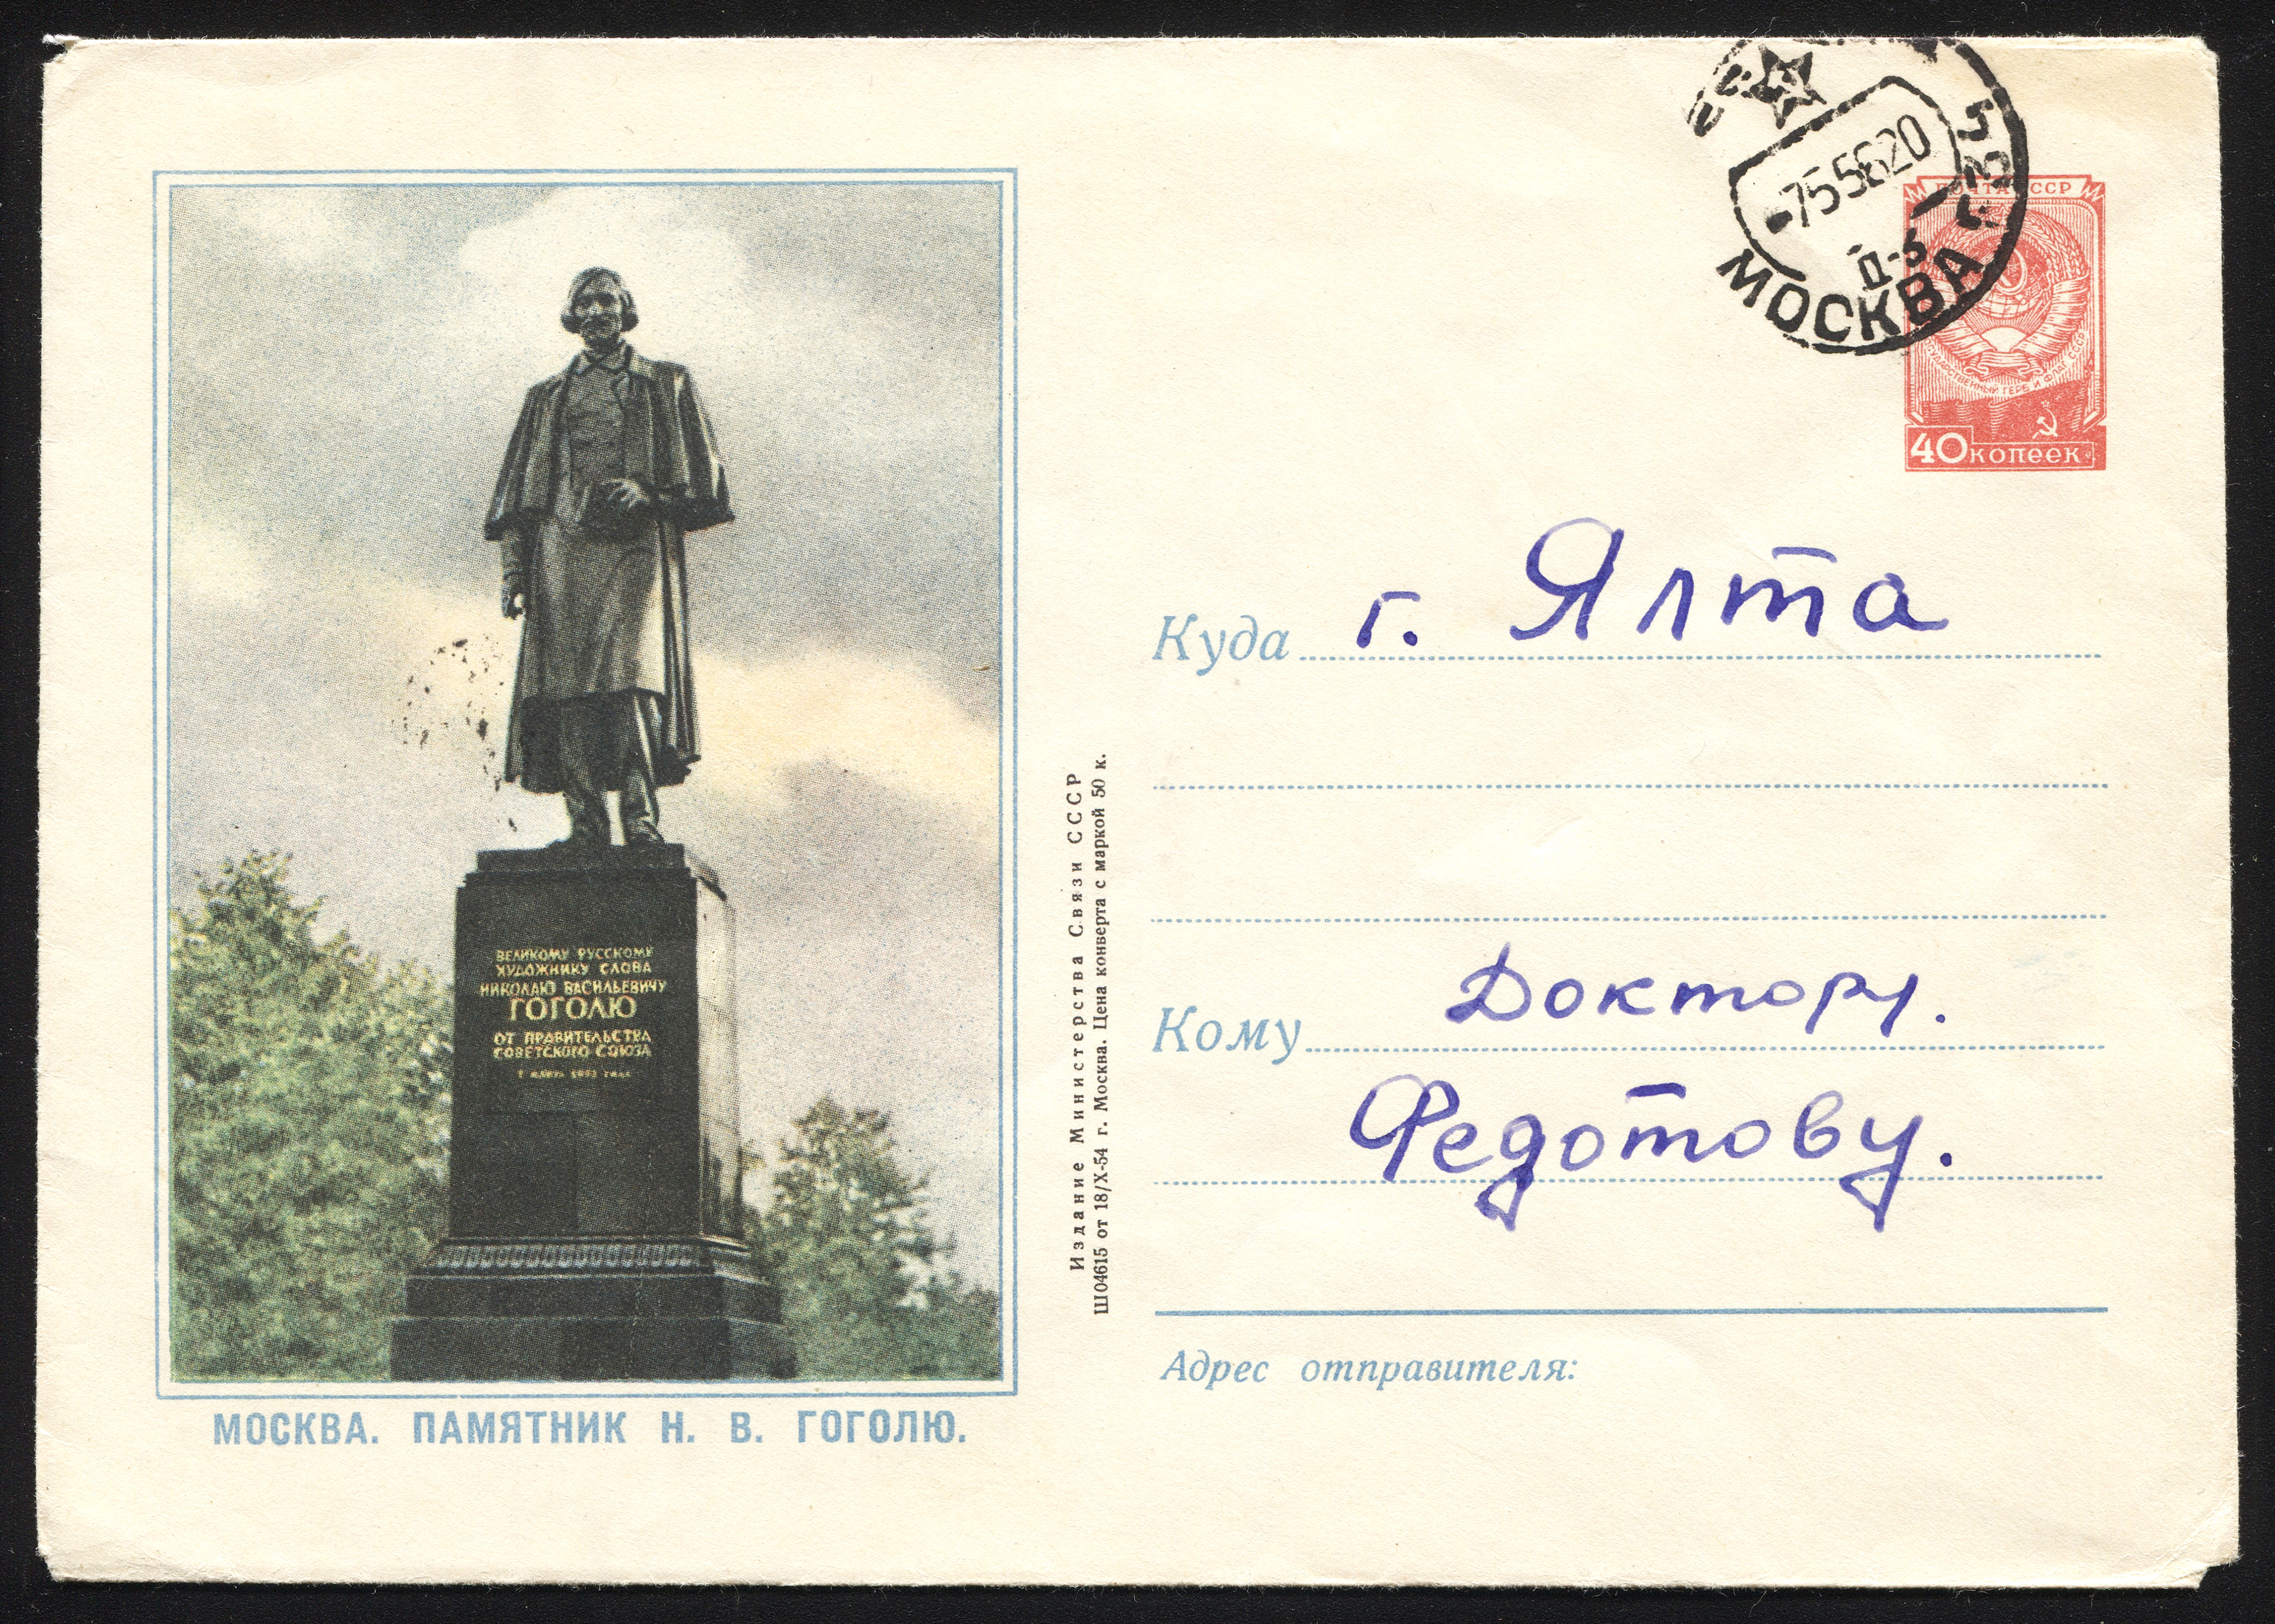 ВЕЛИКОМУ РУССКОМУ
ХУДОЖНИКУ СЛОВА
НИКОЛАЮ ВАСИЛЬЕВИЧУ
ГОГОЛЮ
ОТ ПРАВИТЕЛЬСТВА
СОВЕТСКОГО СОЮЗА
МОСКВА. ПАМЯТНИК Н. В. ГОГОЛЮ.
Издание Министерства Связи СССР
Ш04615 от 18/X-54 г. Москва. Цена конверта с маркой 50 к.
-755620
Д-5
МОСКВА
ПОЧТА СССР
40 копеек
Куда г. Ялта
Кому Доктору.
Федотову.
Адрес отправителя: